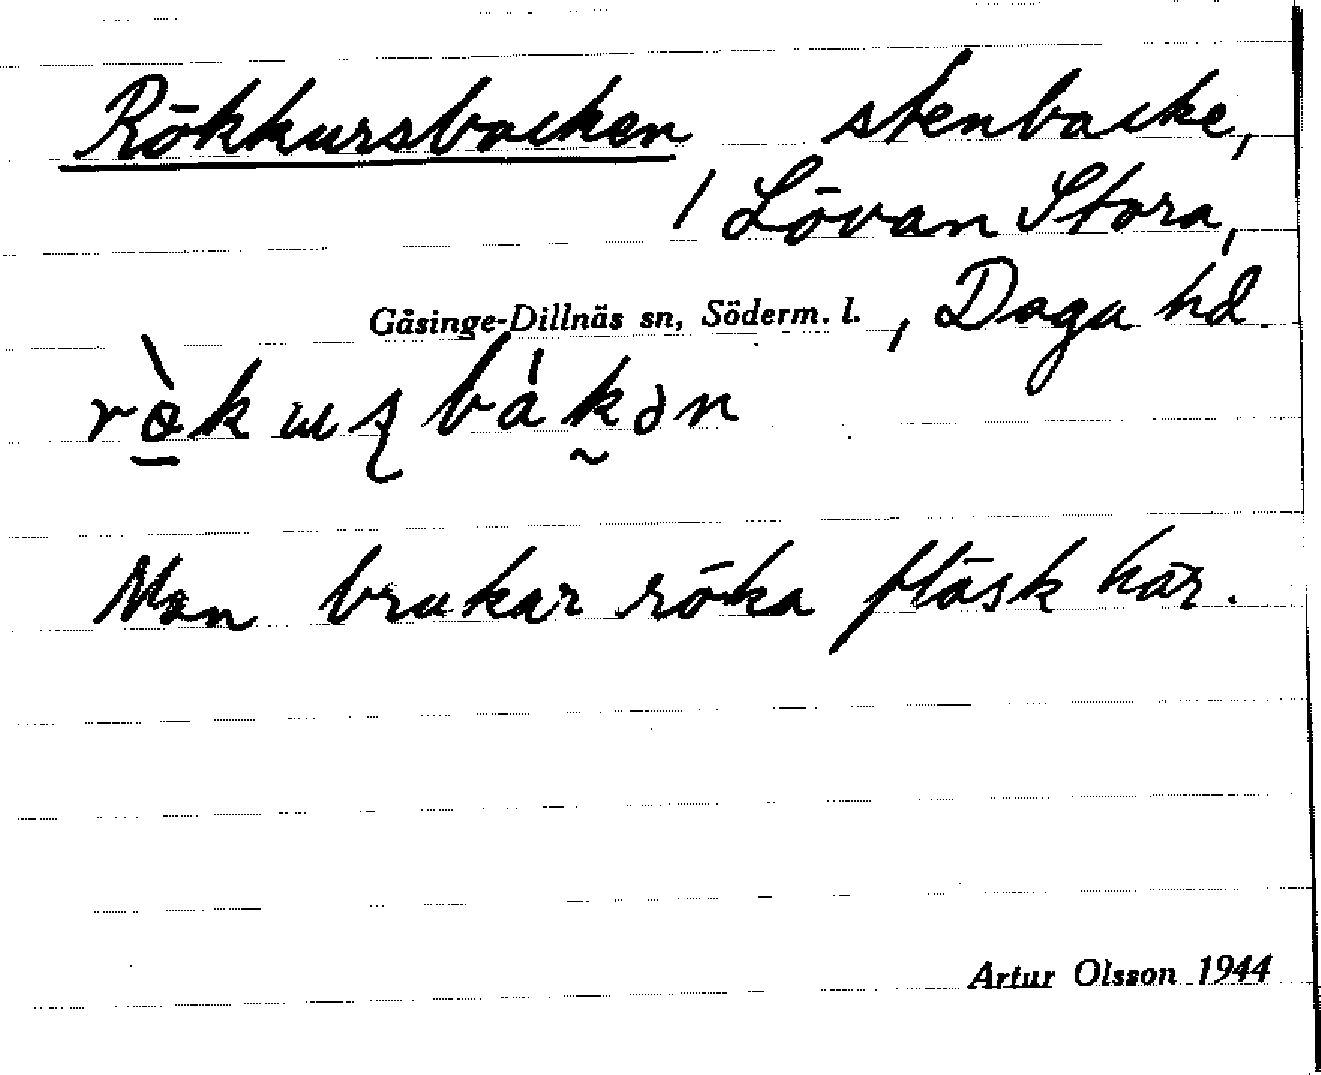 Rökkursbacken stenbacke,
/ Lövan Stora,
Gåsinge-Dillnäs sn, Söderm. l. , Daga hd.
Man brukar röka fläsk här.
Artur Olsson 1944